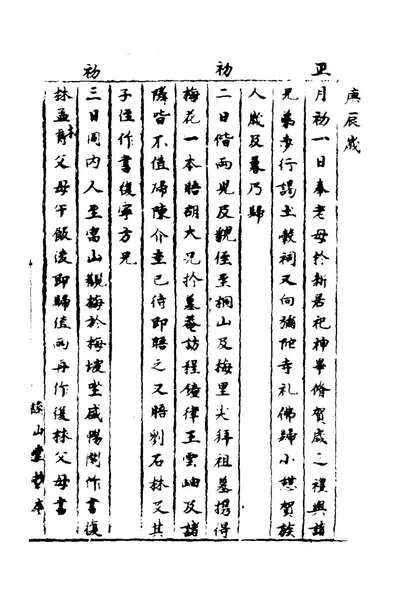 庚辰歲
正月初一日奉老母於新居祀神畢脩賀歲之禮與諸
兄弟步行謁土穀祠又向彌陀寺礼佛歸小憇賀族
人歲及暮乃歸
初二日偕兩兄及觀侄至桐山及梅里尖拜祖墓携得
梅花一本晤胡大兄於墓菴訪程律王雲岫及諸
隣皆不值歸陳介圭已待即晤之又晤劉石林又其
子侄作書復寧方兄
初三日同内人至寓山觀梅於梅坡坐咸暢閣作書復
林孟父母午飯後即歸值雨再作復林父母書
遠山堂抄本